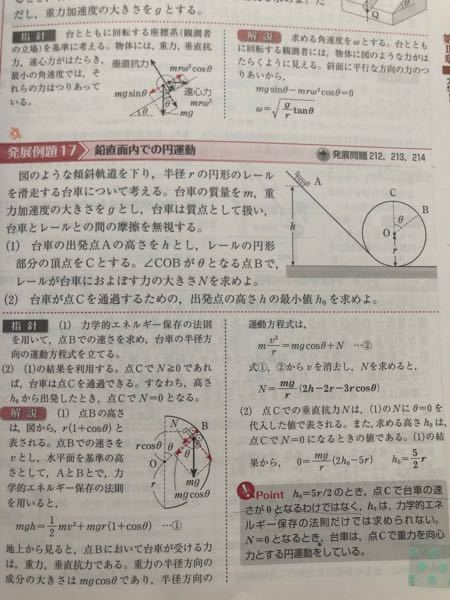 だし,重力加速度の大きさを g とする。
指 針 台とともに回転する座標系(観測者
の立場)を基準に考える。物体には,重力,垂直抗
力,遠心力がはたらき,
最小の角速度では,そ
れらの力はつりあって
いる。
垂直抗力
mrω²cosθ
mgsinθ
遠心力
mrω²
mg
Q
解 説 求める角速度をωとする。台ととも
に回転する観測者には,物体に図のような力がは
たらくように見える。斜面に平行な方向の力のつ
りあいから,
mgsinθ−mrω²cosθ=0
ω=√(g/r tanθ)
発展例題17 鉛直面内での円運動
発展問題 212, 213, 214
図のような傾斜軌道を下り,半径 r の円形のレール
を滑走する台車について考える。台車の質量を m,重
力加速度の大きさを g とし,台車は質点として扱い,台
車とレールとの間の摩擦を無視する。
(1) 台車の出発点Aの高さを h とし,レールの円形
部分の頂点をCとする。∠COBがθとなる点Bで,
レールが台車におよぼす力の大きさNを求めよ。
(2) 台車が点Cを通過するための,出発点の高さ h の最小値 h₀ を求めよ。
A
h
C
B
θ
O
r
指 針 (1) 力学的エネルギー保存の法則
を用いて,点Bでの速さを求め,台車の半径方
向の運動方程式を立てる。
(2) (1)の結果を利用する。点CでN≧0であれ
ば,台車は点Cを通過できる。すなわち,高さ
h₀ から出発したとき,点CでN=0となる。
解 説 (1) 点Bの高さ
は,図から,r(1+cosθ)と
表される。点Bでの速さを
v とし,水平面を基準の高
さとして,AとBとで,力
学的エネルギー保存の法則
を用いると,
mgh=1/2 mv²+mgr(1+cosθ) …①
地上から見ると,点Bにおいて台車が受ける力
は,重力,垂直抗力である。重力の半径方向の
成分の大きさは mgcosθ であり,半径方向の
N
B
rcosθ
O
θ
r
mg
mgcosθ
運動方程式は,
m v²/r=mgcosθ+N …②
式①,②から v を消去し,Nを求めると,
N=mg/r (2h−2r−3rcosθ)
(2) 点Cでの垂直抗力Nは,(1)のNにθ=0を
代入した値で表される。また,求める高さ h₀ は,
点CでN=0になるときの値である。(1)の結
果から, 0=mg/r (2h₀−5r) h₀=5/2 r
Point h₀=5r/2のとき,点Cで台車の速
さが0となるわけではなく,h₀は,力学的エネ
ルギー保存の法則だけでは求められない。
N=0となるとき,台車は,点Cで重力を向心
力とする円運動をしている。